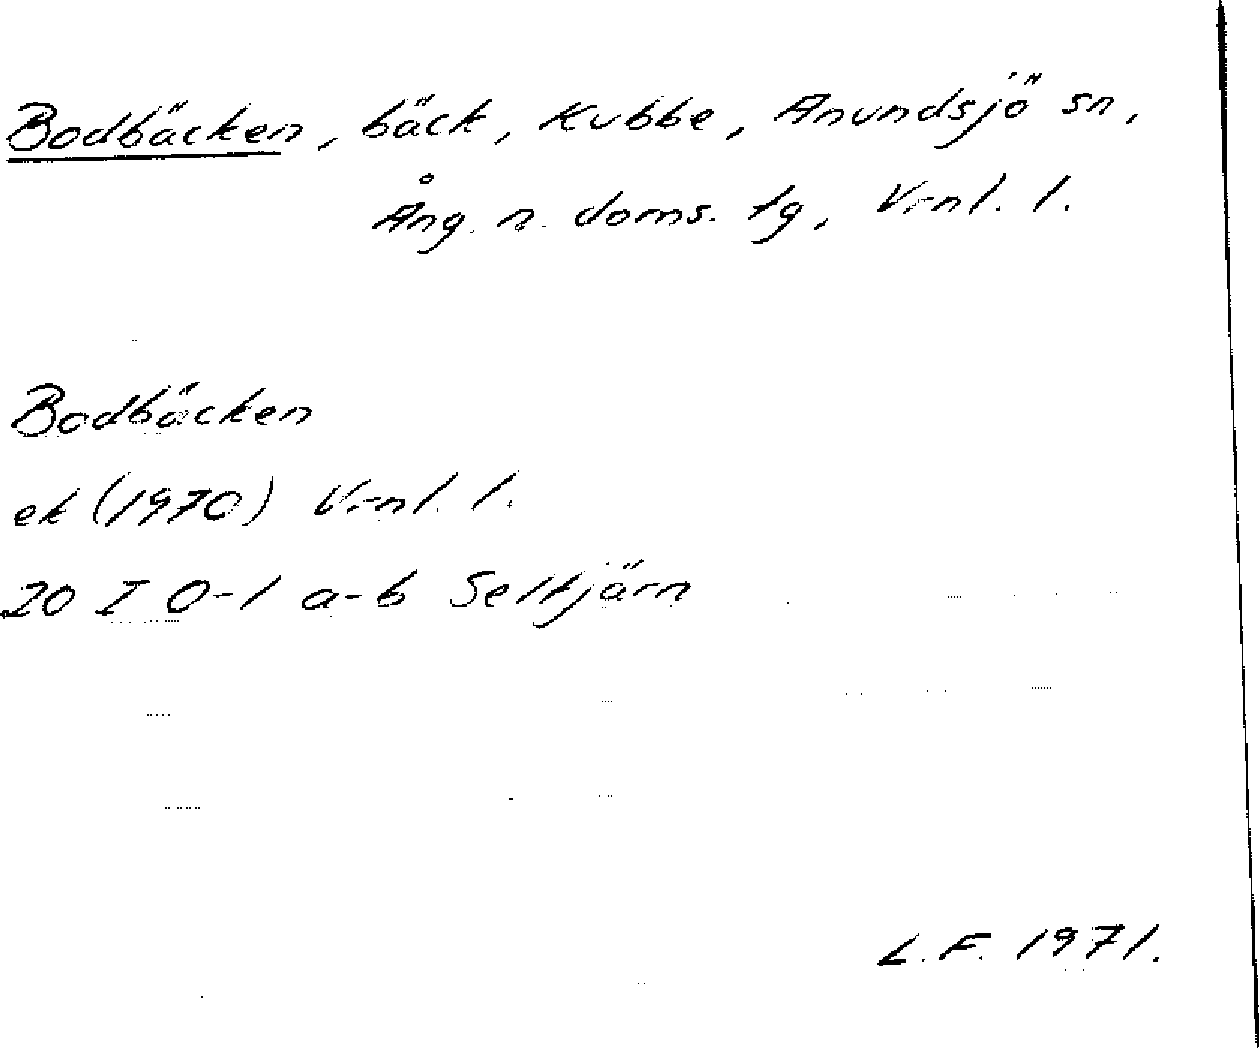 Bodbäcken, bäck, Kubbe, Anundsjö sn,
Ång. n. doms. tg, Vrnl. l.
Bodbäcken
ek (1970) Vrnl. l.
20 I 0-1 a-b Seltjärn
L.F. 1971.